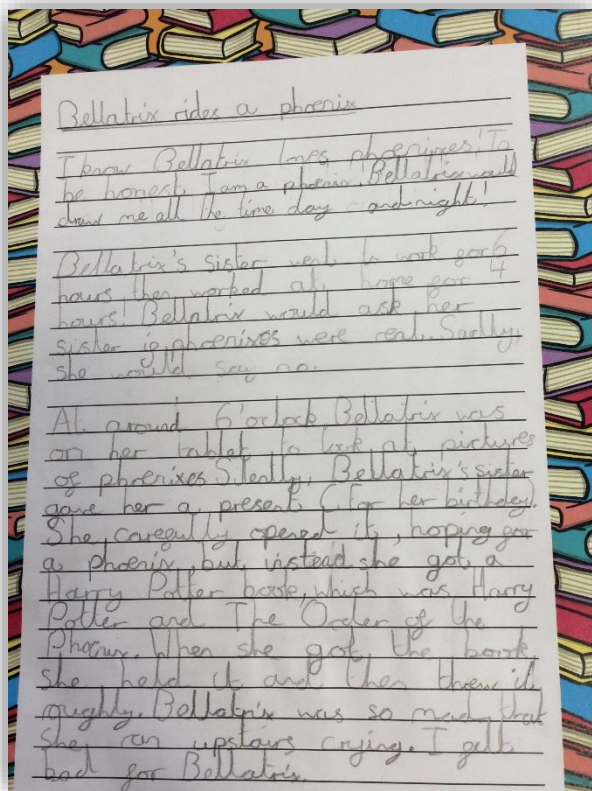 Bellatrix rides a phoenix
I know Bellatrix loves phoenixes! To
be honest, I am a phoenix. Bellatrix would
draw me all the time day and night!
Bellatrix's sister went to work for 6
hours, then worked at home for 4
hours! Bellatrix would ask her
sister if phoenixes were real. Sadly,
she would say no.
At around 6 o'clock, Bellatrix was
on her tablet to look at pictures
of phoenixes. Silently, Bellatrix's sister
gave her a present (For her birthday).
She carefully opened it, hoping for
a phoenix, but instead she got a
Harry Potter book, which was Harry
Potter and The Order of the
When she got the book,
she held it and then threw it
roughly. Bellatrix was so mad that
she ran upstairs crying. I felt
bad for Bellatrix.